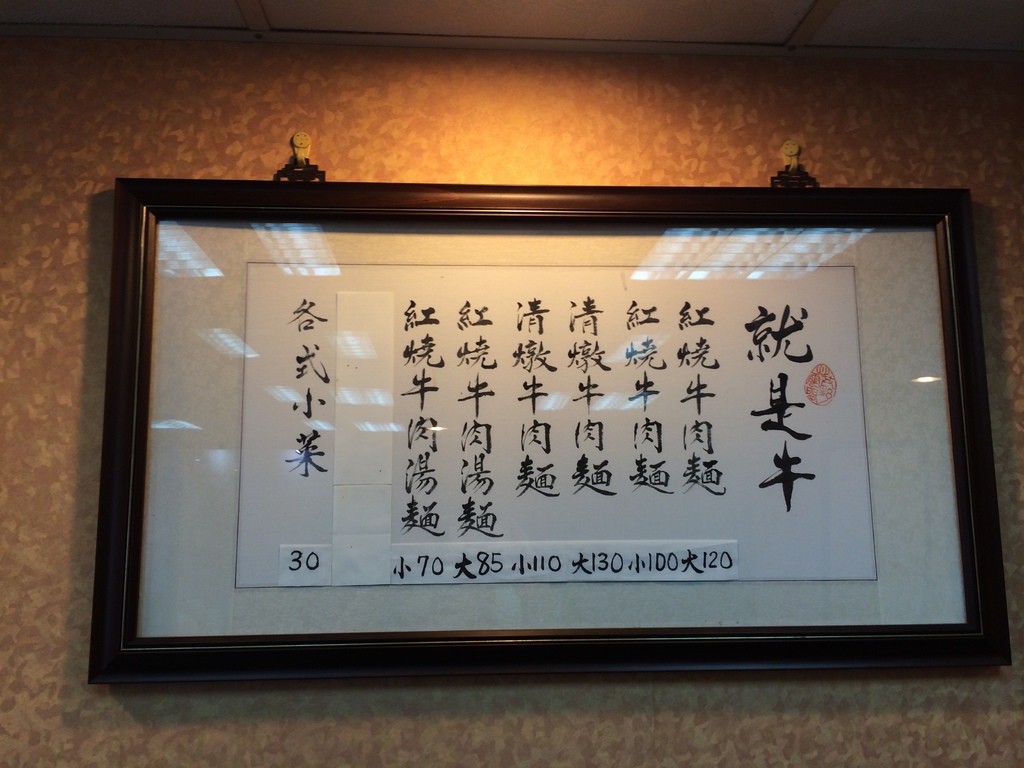 就是牛
紅燒牛肉麵 大120
紅燒牛肉麵 小100
清燉牛肉麵 大130
清燉牛肉麵 小110
紅燒牛肉湯麵 大85
紅燒牛肉湯麵 小70
各式小菜 30